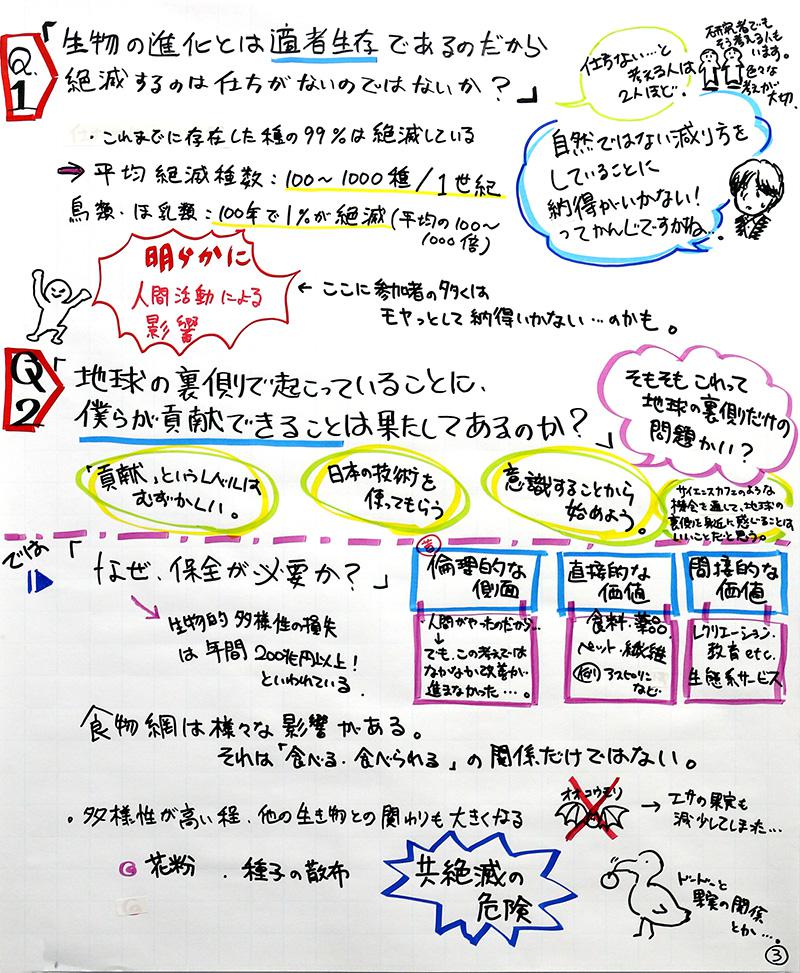 Q.1
「生物の進化とは適者生存であるのだから
絶滅するのは仕ちがないのではないか？」
仕ちない…と
考える人は
2人ほど。
研究者でも
そう考える人も
います。
色々な
考えが
大切。
・これまでに存在した種の99%は絶滅している
→ 平均絶滅種数：100～1000種/1世紀
鳥類・ほ乳類：100年で1%が絶滅(平均の100～
1000倍)
自然ではない減り方を
していることに
納得がいかない！
ってかんじですかね…
明らかに
人間活動による
影響
← ここに参加者の多くは
モヤっとして納得いかない…のかも。
Q2
「地球の裏側で起こっていることに、
僕らが貢献できることは果たしてあるのか？」
そもそもこれって
地球の裏側だけの
問題かい？
「貢献」というレベルは
むずかしい。
日本の技術を
使ってもらう
意識することから
始めよう。
サイエンスカフェのような
機会を通して、地球の
裏側を身近に感じることは
いいことだと思う。
では
「なぜ、保全が必要か？」
生物的多様性の損失
は年間200兆円以上！
といわれている.
昔
倫理的な
側面
人間がやったのだから…
↓
でも、この考えでは
なかなか改革が
進まなかった…。
直接的な
価値
食料・薬品
ペット・繊維
例) アスピリン
など
間接的な
価値
レクリエーション・
教育etc.
生態系サービス
食物網は様々な影響がある。
それは「食べる・食べられる」の関係だけではない。
・多様性が高い程、他の生き物との関わりも大きくなる
オオコウモリ
→ エサの果実も
減少してしまった…
花粉 ・種子の散布
共絶滅の
危険
ドードーと
果実の関係
とか…。
③